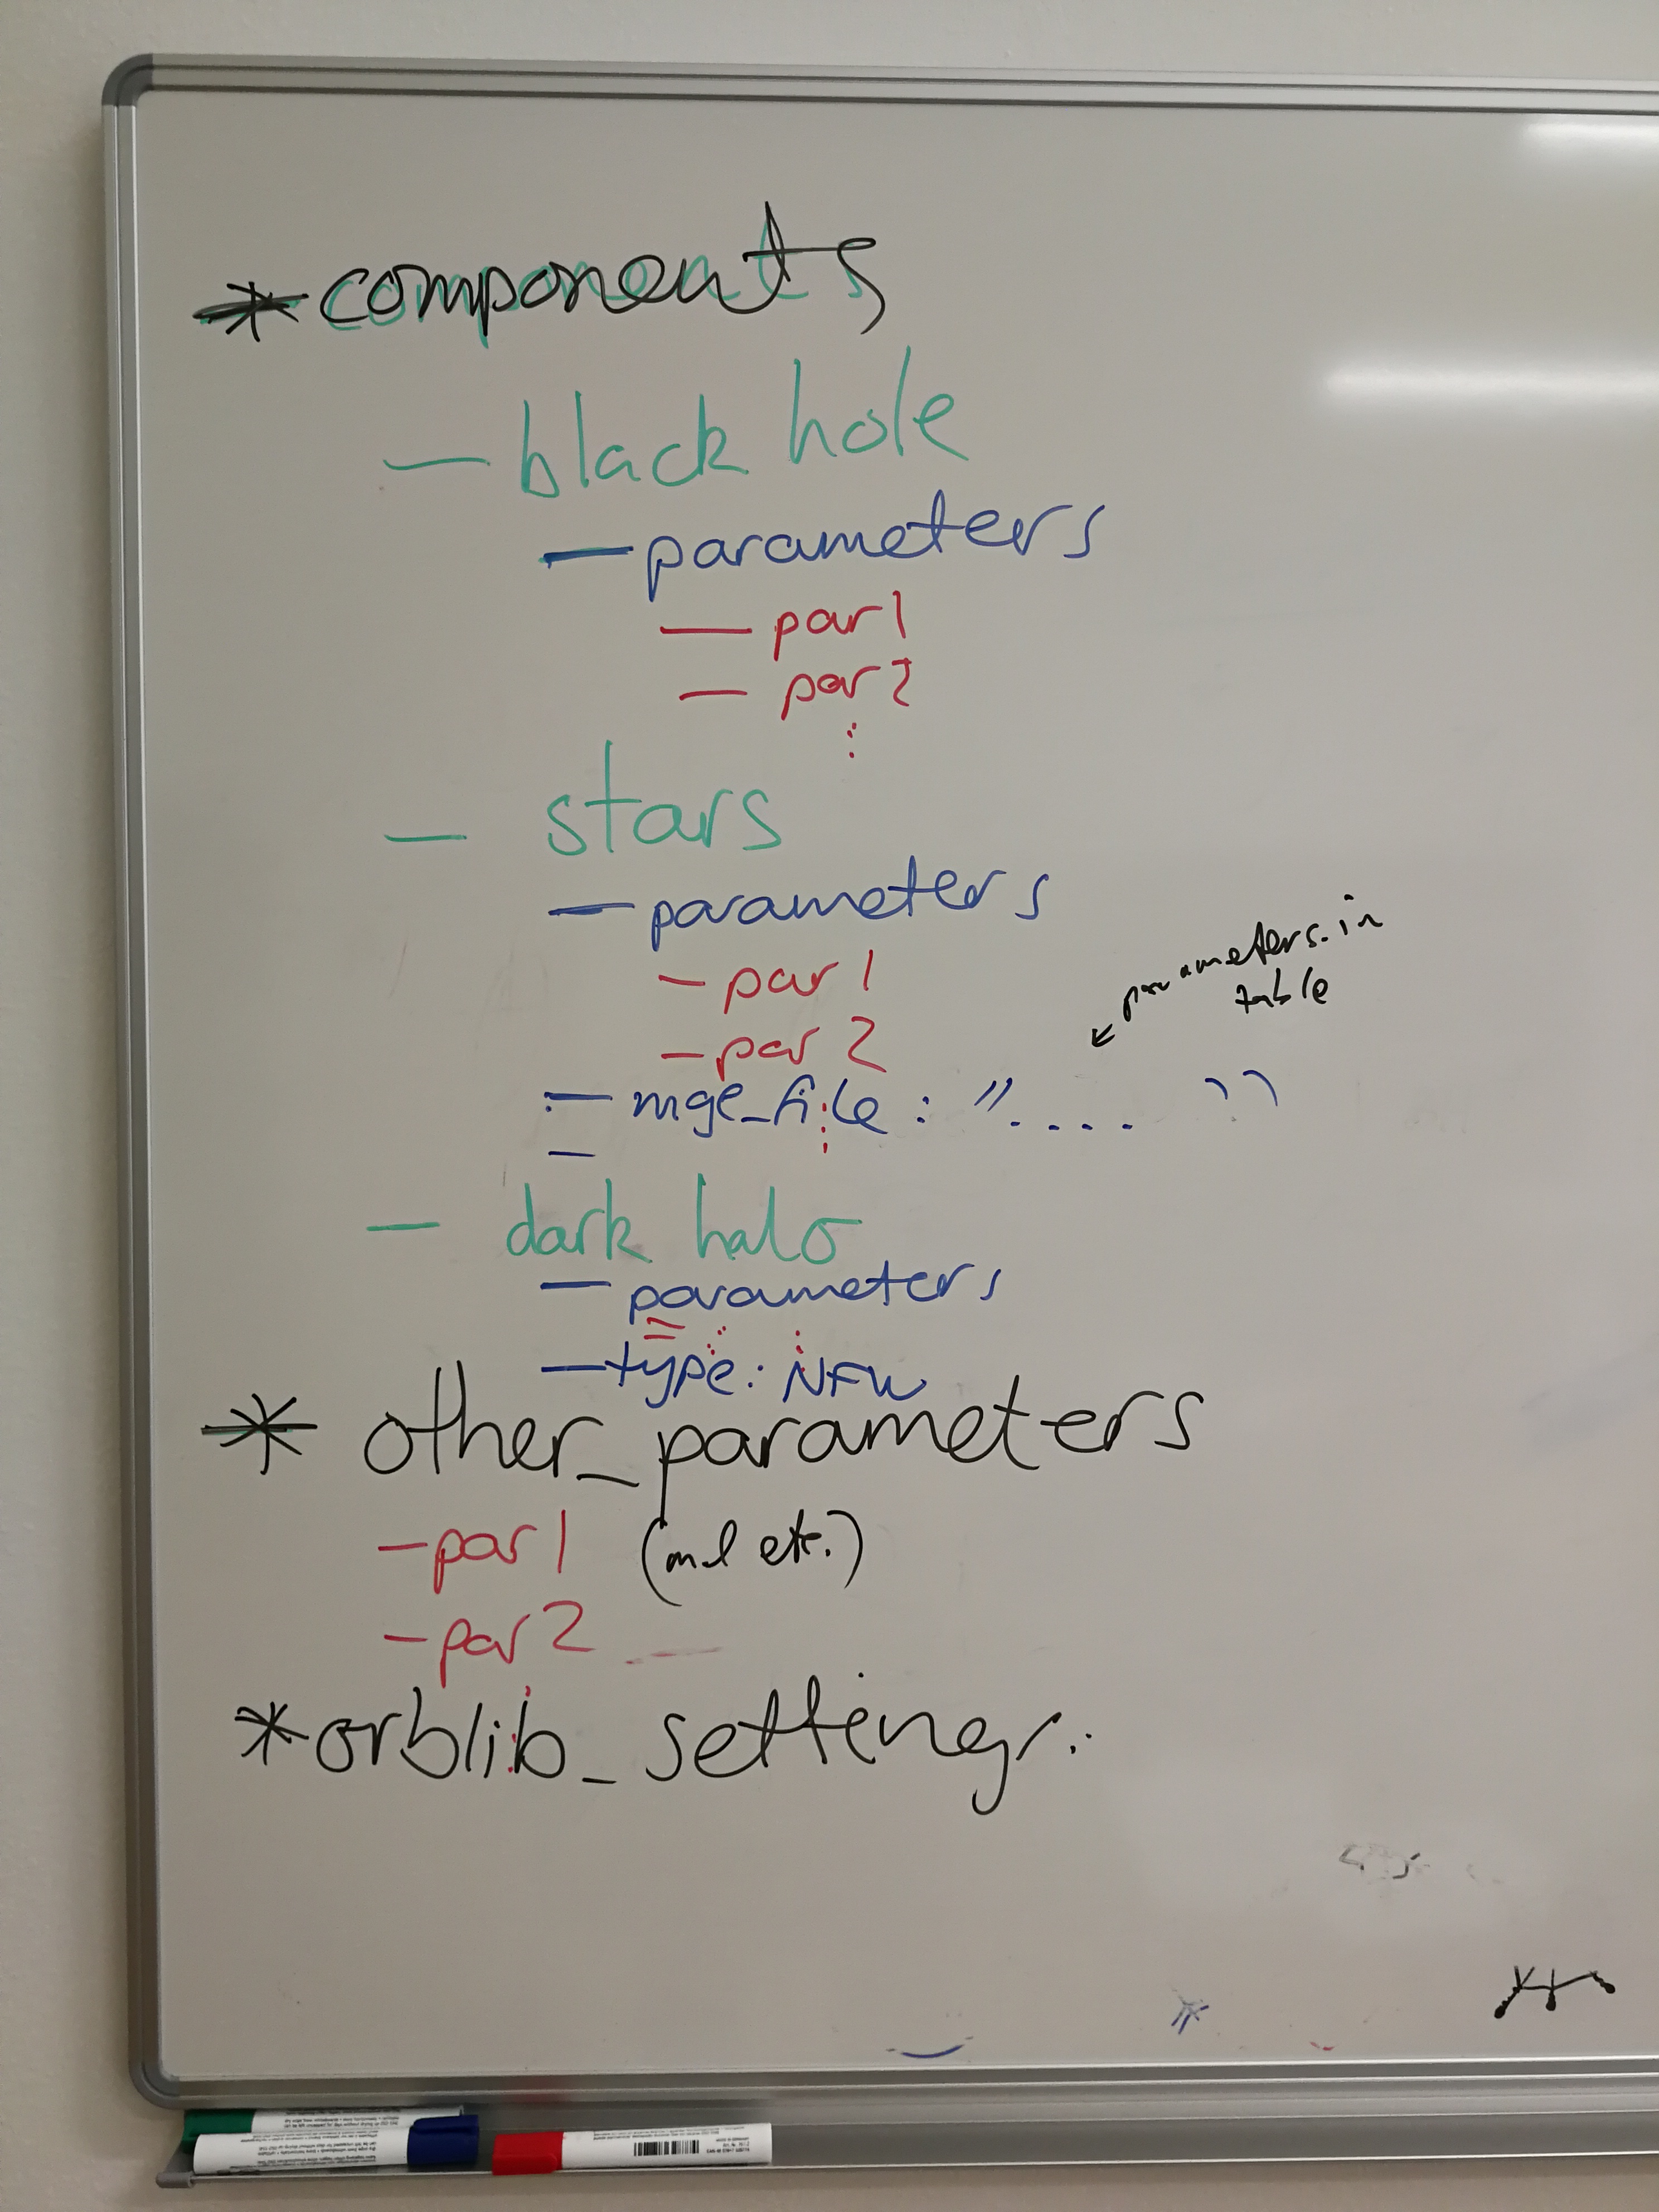 * components
— black hole
— parameters
— par 1
— par 2
⋮
— stars
— parameters
- par 1
- par 2
parameters.in
table
— mge_file : "....  "
—
— dark halo
— parameters
— type: NFW
* other_parameters
- par 1 (ml etc.)
- par 2
* orblib_settings..